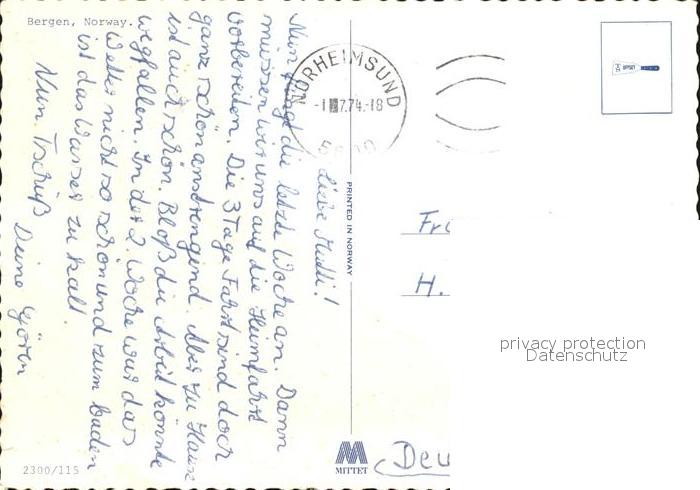 Bergen, Norway.
NORHEIMSUND
7.74.-18
Liebe Mutti!
Nun fängt die letzte Woche an. Dann
müssen wir uns auf die Heimfahrt
vorbereiten. Die 3 Tage Fahrt sind doch
ganz schön anstrengend. Aber zu Hause
ist auch schön. Bloß die Arbeit könnte
wegfallen. In der 2. Woche war das
Wetter nicht so schön und zum baden
ist das Wasser zu kalt.
Nun Tschüß Deine
PRINTED IN NORWAY
MITTET
2300/115
H.
privacy protection
Datenschutz